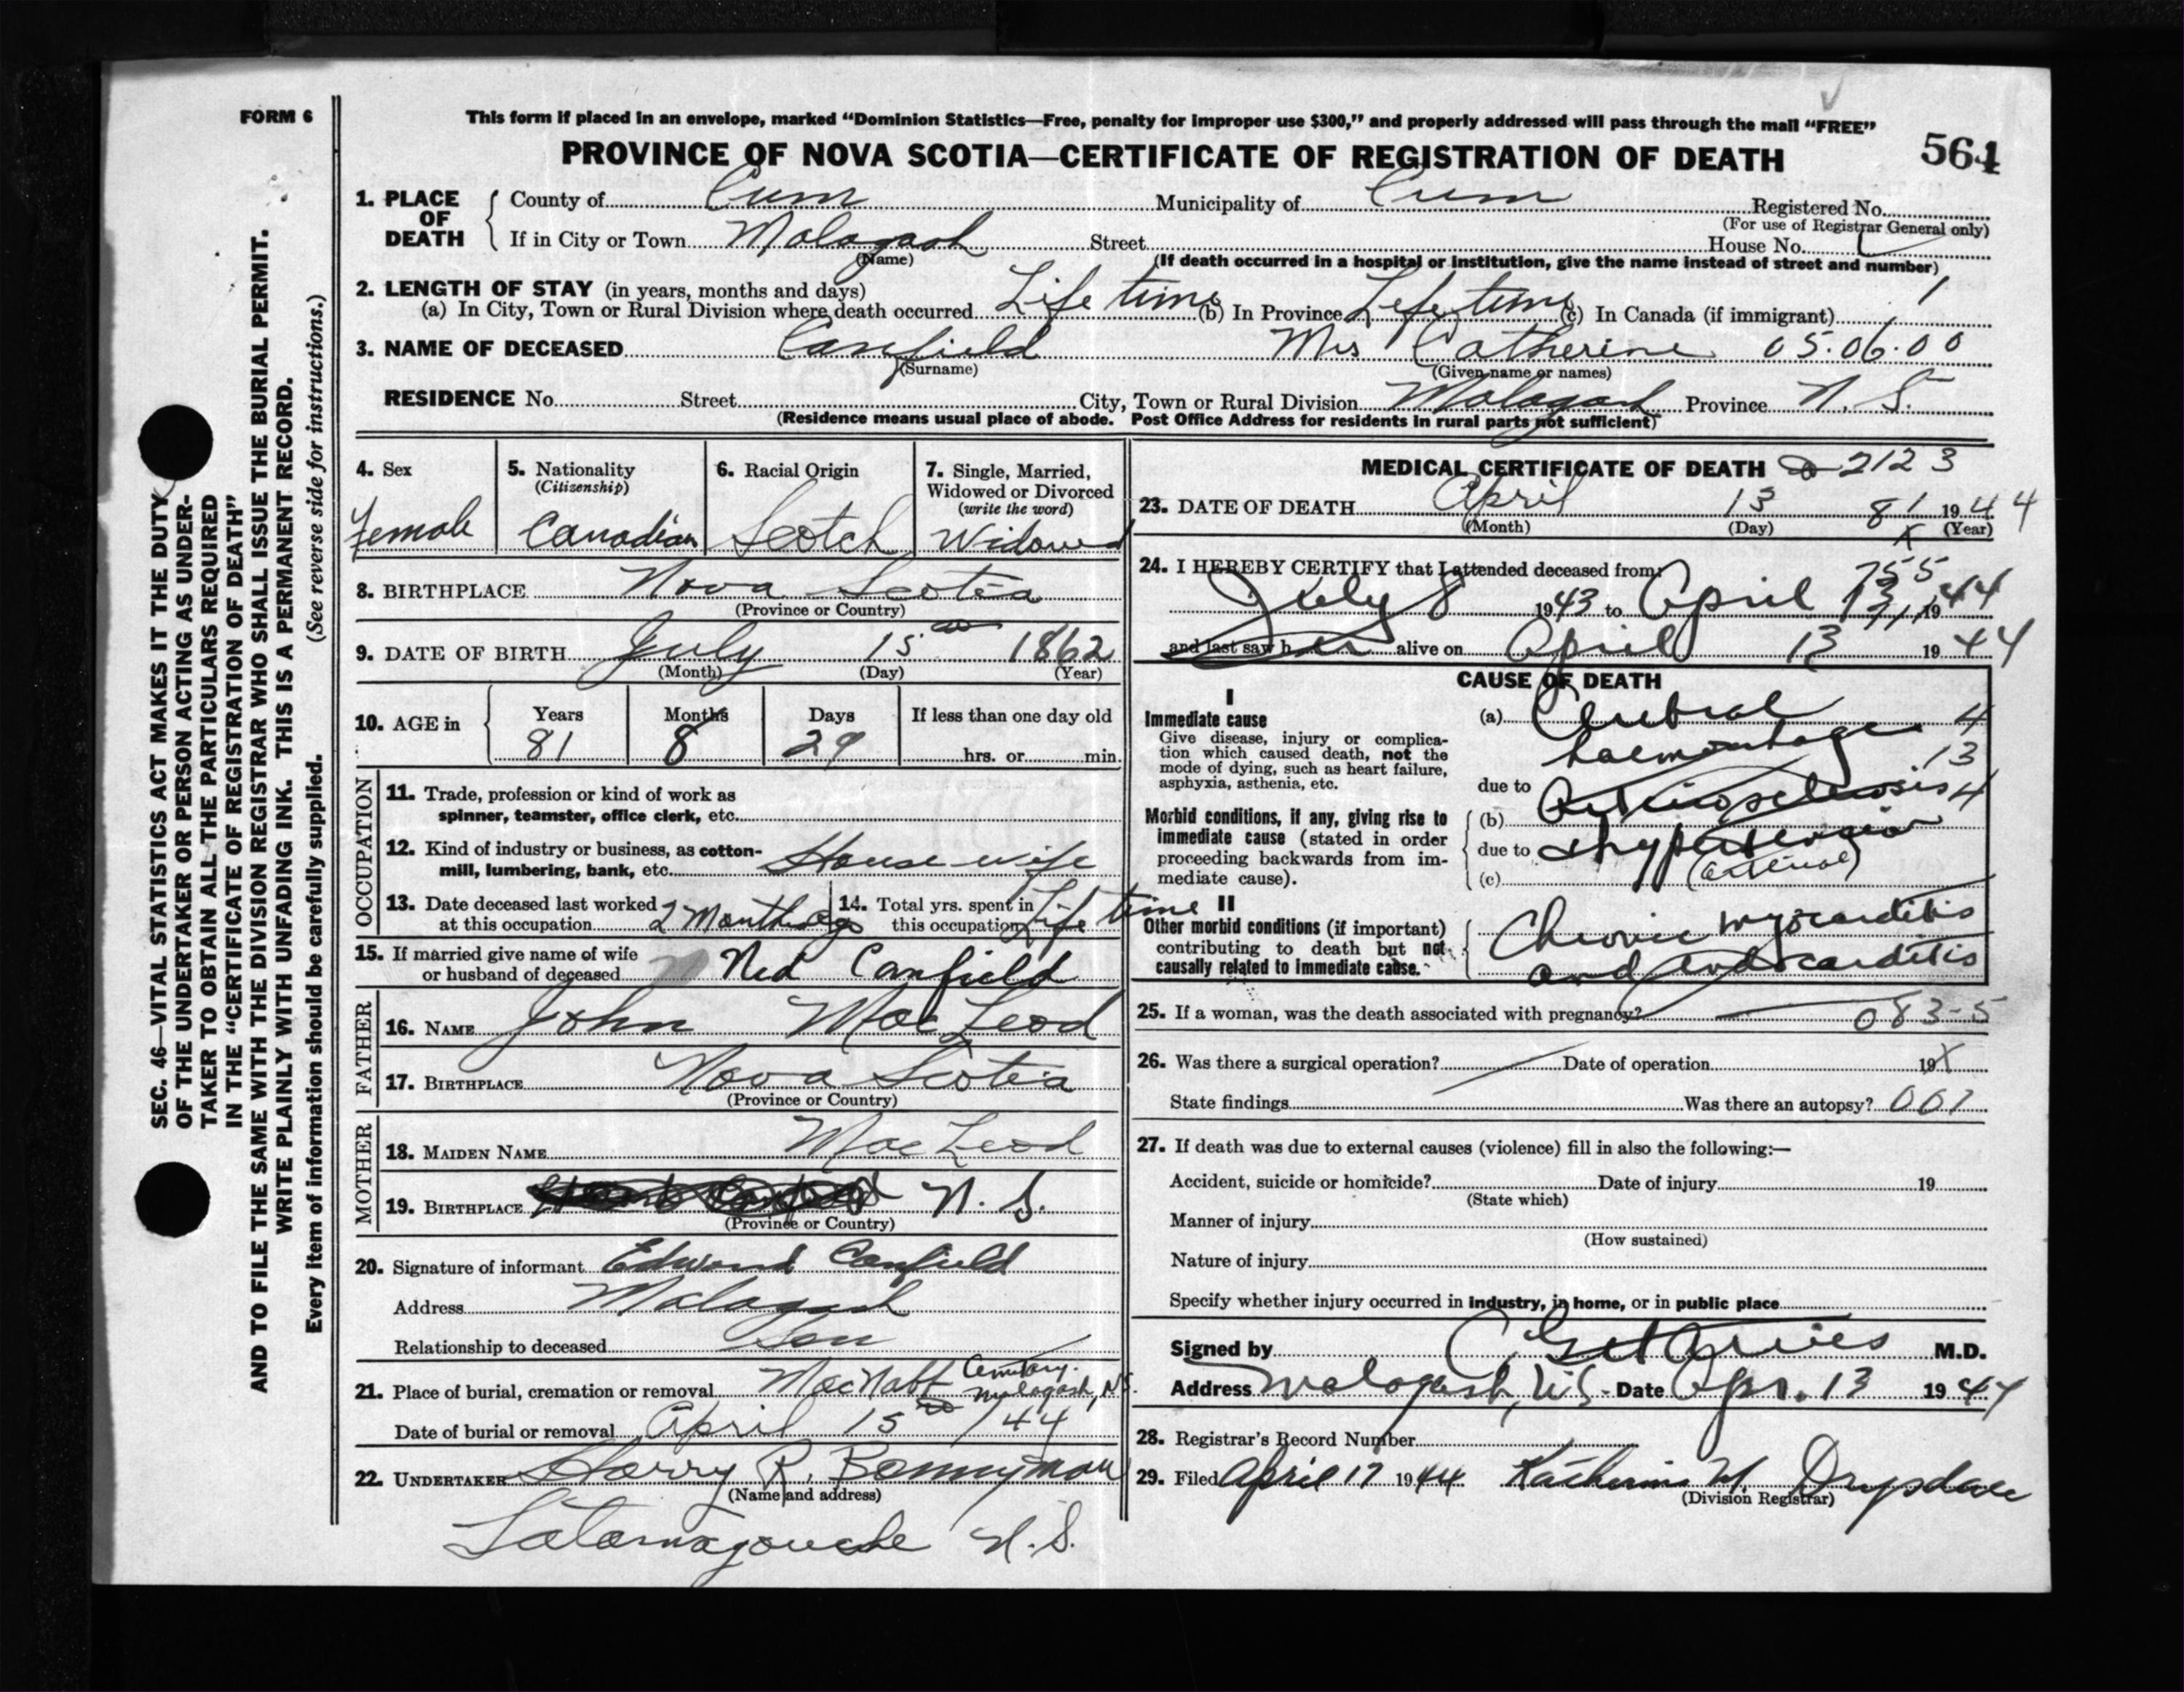 FORM 6
This form if placed in an envelope, marked “Dominion Statistics—Free, penalty for improper use $300,” and properly addressed will pass through the mail “FREE”
PROVINCE OF NOVA SCOTIA—CERTIFICATE OF REGISTRATION OF DEATH
564
1. PLACE OF DEATH
County of Cum Municipality of Cum Registered No.
(For use of Registrar General only)
If in City or Town Malagash Street House No.
(Name)
(If death occurred in a hospital or institution, give the name instead of street and number)
2. LENGTH OF STAY (in years, months and days)
(a) In City, Town or Rural Division where death occurred Life time (b) In Province Life time (c) In Canada (if immigrant)
3. NAME OF DECEASED Canfield Mrs Catherine 05.06.00
(Surname) (Given name or names)
RESIDENCE No. Street City, Town or Rural Division Malagash Province N. S.
(Residence means usual place of abode. Post Office Address for residents in rural parts not sufficient)
4. Sex
Female
5. Nationality
(Citizenship)
Canadian
6. Racial Origin
Scotch
7. Single, Married,
Widowed or Divorced
(write the word)
Widowed
8. BIRTHPLACE Nova Scotia
(Province or Country)
9. DATE OF BIRTH July 15 1862
(Month) (Day) (Year)
10. AGE in
Years Months Days If less than one day old
81 8 29 hrs. or min.
OCCUPATION
11. Trade, profession or kind of work as
spinner, teamster, office clerk, etc.
12. Kind of industry or business, as cotton-
mill, lumbering, bank, etc. House wife
13. Date deceased last worked
at this occupation 2 Months ago
14. Total yrs. spent in
this occupation Life time
15. If married give name of wife
or husband of deceased Ned Canfield
FATHER
16. NAME John MacLeod
17. BIRTHPLACE Nova Scotia
(Province or Country)
MOTHER
18. MAIDEN NAME MacLeod
19. BIRTHPLACE N. S.
(Province or Country)
20. Signature of informant Edward Canfield
Address Malagash
Relationship to deceased Son
21. Place of burial, cremation or removal MacNabb Cemetary. Malagash, N.S.
Date of burial or removal April 15 /44
22. UNDERTAKER Harry R. Bonnyman
(Name and address)
Tatamagouche N.S.
MEDICAL CERTIFICATE OF DEATH 2123
23. DATE OF DEATH April 13 81 1944
(Month) (Day) (Year)
24. I HEREBY CERTIFY that I attended deceased from:
755
July 8 1943 to April 13, 1944
and last saw her alive on April 13 1944
CAUSE OF DEATH
I
Immediate cause
Give disease, injury or complica-
tion which caused death, not the
mode of dying, such as heart failure,
asphyxia, asthenia, etc.
(a) Cerebral 4
haemorrhage 13
due to
Morbid conditions, if any, giving rise to
immediate cause (stated in order
proceeding backwards from im-
mediate cause).
(b) Arteriosclerosis 4
due to & hypertension
(c) (arterial)
II
Other morbid conditions (if important)
contributing to death but not
causally related to immediate cause.
Chronic myocarditis
and endocarditis
25. If a woman, was the death associated with pregnancy? 083-5
26. Was there a surgical operation? Date of operation 19 X
State findings Was there an autopsy? 007
27. If death was due to external causes (violence) fill in also the following:—
Accident, suicide or homicide? Date of injury 19
(State which)
Manner of injury
(How sustained)
Nature of injury
Specify whether injury occurred in industry, in home, or in public place
Signed by M.D.
Address Malagash, N.S. Date Apr. 13 1944
28. Registrar's Record Number
29. Filed April 17 1944 Katherine M. Drysdale
(Division Registrar)
SEC. 46—VITAL STATISTICS ACT MAKES IT THE DUTY
OF THE UNDERTAKER OR PERSON ACTING AS UNDER-
TAKER TO OBTAIN ALL THE PARTICULARS REQUIRED
IN THE “CERTIFICATE OF REGISTRATION OF DEATH”
AND TO FILE THE SAME WITH THE DIVISION REGISTRAR WHO SHALL ISSUE THE BURIAL PERMIT.
WRITE PLAINLY WITH UNFADING INK. THIS IS A PERMANENT RECORD.
Every item of information should be carefully supplied. (See reverse side for instructions.)